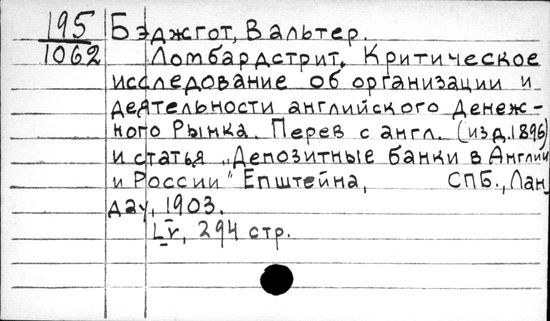 195 Бэджгот, Вальтер.
1062 Ломбардстрит. Критическое
исследование об организации и
деятельности английского Денеж-
ного Рынка. Перев с англ. (изд. 1896)
и статья „Депозитные банки в Англии
и России" Епштейна, СПБ., Лан
дау, 1903.
LV, 294 стр.